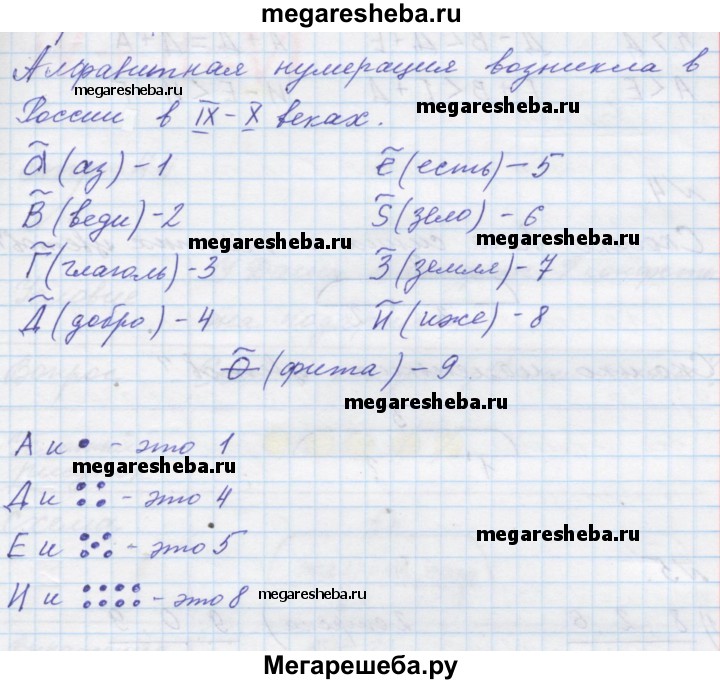 megaresheba.ru
Алфавитная нумерация возникла в
megaresheba.ru
России в IX - X веках.
megaresheba.ru
а̃ (аз) - 1
е̃ (есть) - 5
В̃ (веди) - 2
Ѕ̃ (зело) - 6
megaresheba.ru
megaresheba.ru
Г̃ (глаголь) - 3
З̃ (земля) - 7
Д̃ (добро) - 4
И̃ (иже) - 8
megaresheba.ru
Ѳ̃ (фита) - 9
megaresheba.ru
А и • - это 1
megaresheba.ru
Д и :: - это 4
megaresheba.ru
Е и ⁙ - это 5
И и :::: - это 8
megaresheba.ru
Мегарешеба.ру